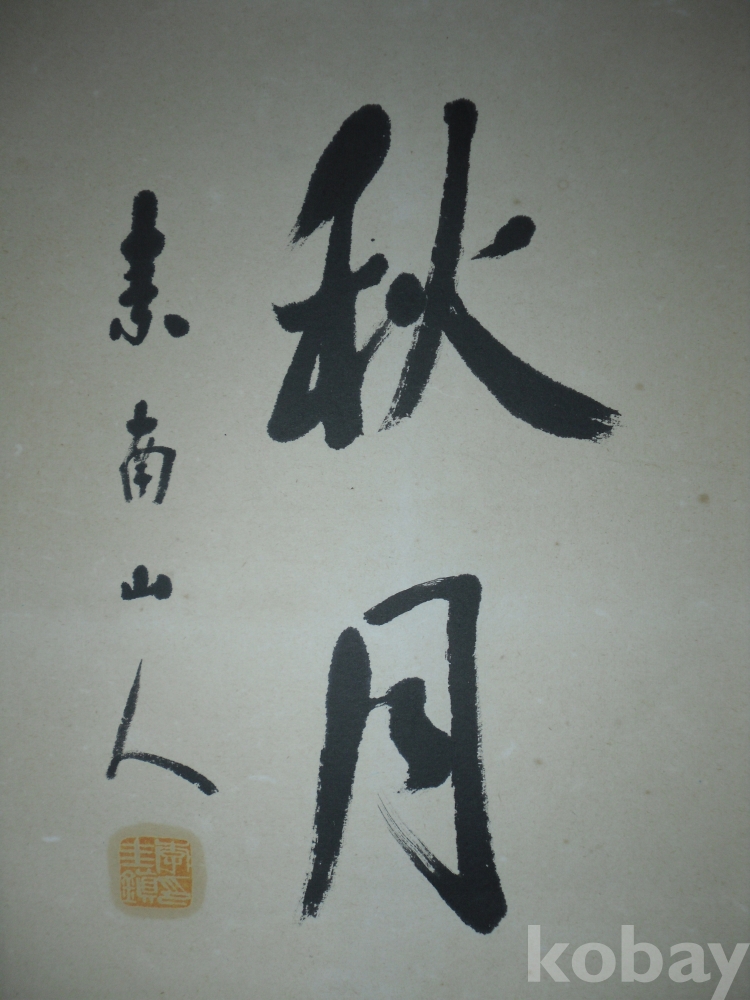 秋月
素南山人
kobay